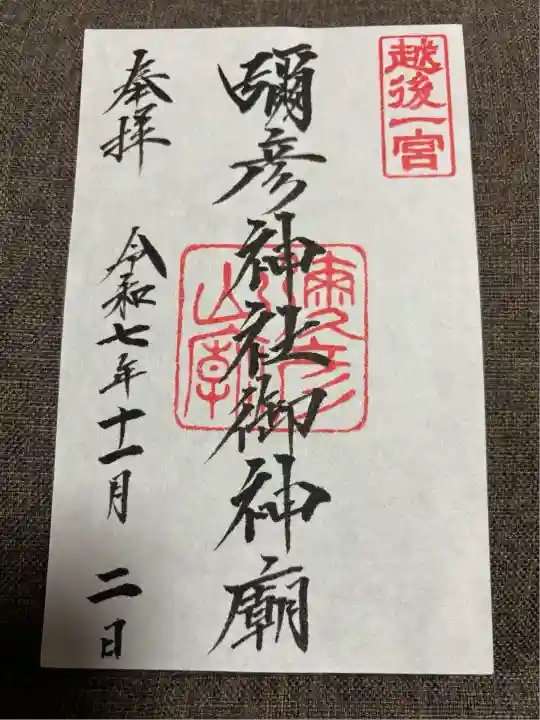 越後一宮
彌彦神社御神廟
奉拝
令和七年十一月二日